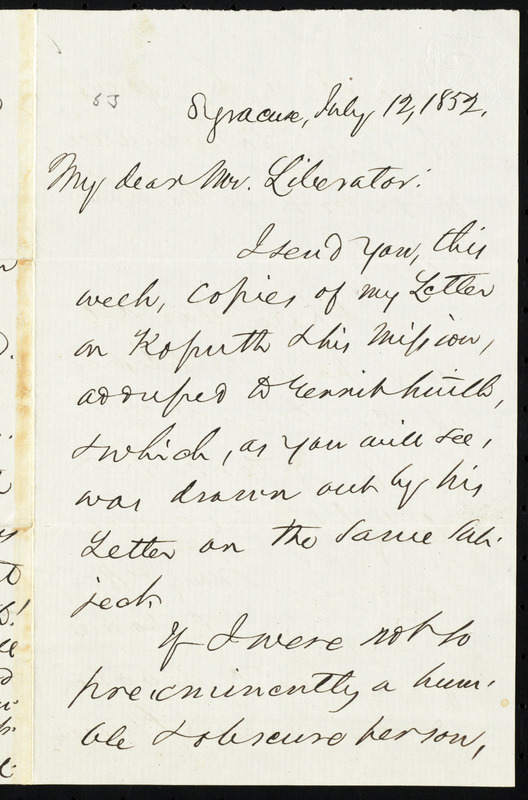 Syracuse, July 12, 1852.
My dear Mr. Liberator:
I send you, this
week, copies of my Letter
on Kossuth & his Mission,
addressed to Gerrit Smith,
& which, as you will see,
was drawn out by his
Letter on the same sub-
ject.
If I were not so
preeminently a hum-
ble & obscure person,